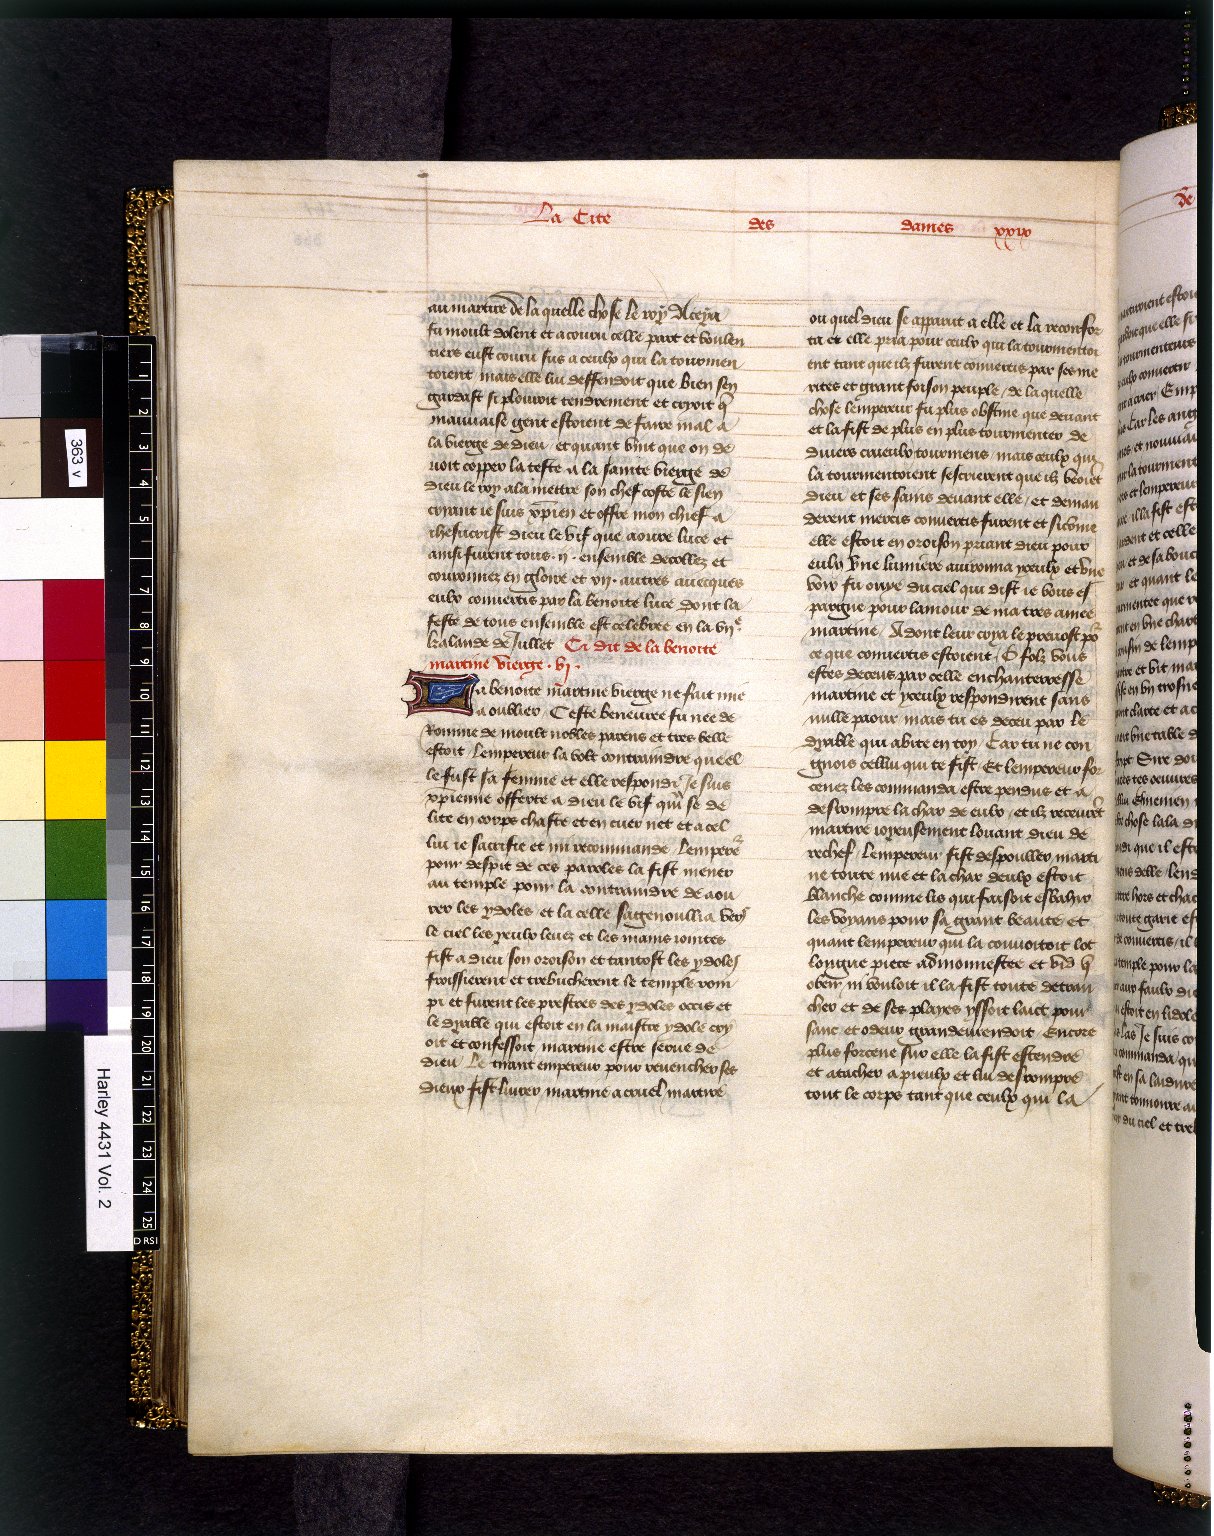 La Cite des dames xxix
au martire de la quelle chose le roy Aceya
fu moult dolent et acouru celle part et voulen
tiers eust couru sus a ceulx qui la tourmen
toient mais elle lui deffendoit que bien sen
gardast si plouroit tendrement et crioit q̃
mauuaise gent estoient de faire mal a
la vierge de dieu et quant vint que on de
uoit copper la teste a la sainte vierge de
dieu le roy ala mettre son chef coste le sien
criant ie suis xp̃ien et offre mon chief a
ihesucrist dieu le vif que aoure luce et
ainsi furent tous .ij. ensemble decollez et
couronnez en gloire et .xij. autres auecques
eulx conuertis par la benoite luce dont la
feste de tous ensemble est celebree en la vije
kalande de Jullet Ci dit de la benoite
martine vierge .vj.
La benoite martine vierge ne fait mie
a oublier Ceste beneuree fu nee de
Romme de moult nobles parens et tres belle
estoit Lempereur la volt contraindre quelle
le fust sa femme et elle respondi Je suis
xp̃ienne offerte a dieu le vif qui se de
lite en corps chaste et en cuer net et a cel
lui ie sacrifie et mi recommande Lempere
pour despit de ces paroles la fist mener
au temple pour la contraindre de aou
rer les ydoles et la celle sagenoullia vers
le ciel les yeulx leuez et les mains iointes
fist a dieu son oroison et tantost les ydoles
froissierent et trebucherent le temple rom
pi et furent les prestres des ydoles occis et
le dyable qui estoit en la maistre ydole cry
oit et confessoit martine estre serue de
dieu Le tirant empereur pour reuencher ses
dieux fist liurer martine a cruel martire
ou quel dieu se apparut a elle et la reconfor
ta et elle pria pour ceulx qui la tourmentoi
ent tant que ilz furent conuertis par ses me
rites et grant foison peuple de la quelle
chose lempereur fu plus obstine que deuant
et la fist de plus en plus tourmenter de
diuers crueulx tourmens mais ceulx qui
la tourmentoient sescrierent que ilz veoiẽt
dieu et ses sains deuant elle et deman
derent mercis conuertis furent et si cõme
elle estoit en oroison priant dieu pour
eulx vne lumiere auironna yceulx et vne
voix fu ouye du ciel qui dist ie vous es
pargne pour lamour de ma tres amee
martine Adont leur crya le preuost po
ce que conuertis estoient O folz vous
estes deceus par celle enchanterresse
martine et yceulx respondirent sans
nulle paour mais tu es deceu par le
dyable qui abite en toy Car tu ne con
gnois cellui qui te fist Et lempereur for
cenez les commanda estre pendus et a
desrompre la char de eulx et ilz receurẽt
martire ioyeusement louant dieu de
rechef lempereur fist despouller marti
ne toute nue et la char deulx estoit
blanche comme lis qui faisoit esbahir
les voyans pour sa grant beaute et
quant lempereur qui la conuoitoit lot
longue piece admonnestee et vid q̃
obeir ni vouloit il la fist toute detran
cher et de ses playes yssoit laict pour
sanc et odeur grande rendoit Encore
plus forcene sur elle la fist estendre
et atacher a pieulx et lui desrompre
tout le corps tant que ceulx qui la
363 v
Harley 4431 Vol. 2
1
2
3
4
5
7
8
9
10
11
12
13
14
15
16
17
18
19
20
21
22
23
24
25